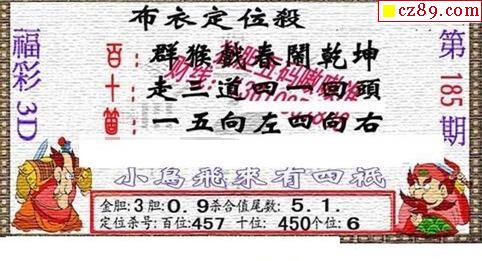 cz89.com
布衣定位殺
福彩3D
第185期
百 群猴戲春鬧乾坤
十 走三道四一回頭
箇 一五向左四向右
小鳥飛來有四祇
金胆:3胆:0.9杀合值尾数:5.1.
定位杀号:百位:457 十位:450个位:6